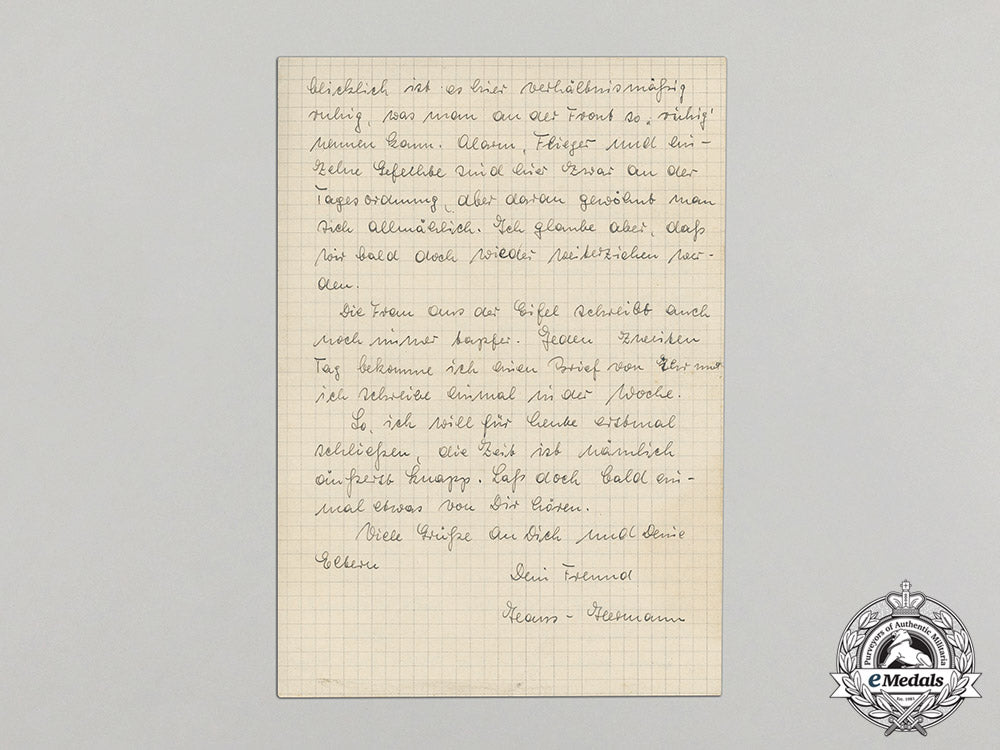 blicklich ist es hier verhältnismäßig
ruhig, was man an der Front so „ruhig"
nennen kann. Alarm, Flieger und ein-
zelne Gefechte sind hier zwar an der
Tagesordnung, aber daran gewöhnt man
sich allmählich. Ich glaube aber, daß
wir bald doch wieder weiterziehen wer-
den.
Die Frau aus der Eifel schreibt auch
noch immer tapfer. Jeden zweiten
Tag bekomme ich einen Brief von Ihr und
ich schreibe einmal in der Woche.
So, ich will für heute erstmal
schließen, die Zeit ist nämlich
äußerst knapp. Laß doch bald ein-
mal etwas von Dir hören.
Viele Grüße an Dich und Deine
Eltern
Dein Freund
Hans-Hermann
Purveyors of Authentic Militaria
eMedals
Est. 1985